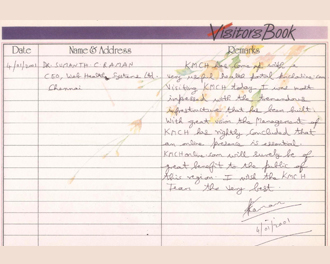 Visitors Book
Date Name & Address Remarks
DR. SUMANTH. C. RAMAN KMCH has come of with a
CEO, Web Health Systems Ltd. very useful health portal
Chennai Visiting KMCH today, I was most
impressed with the tremendous
infrastructure that has been built.
With great vision the Management of
KMCH has rightly concluded that
an online presence is essential
KMCHonline.com will surely be of
great benefit to the public of
this region. I wish the KMCH
Team the very best.